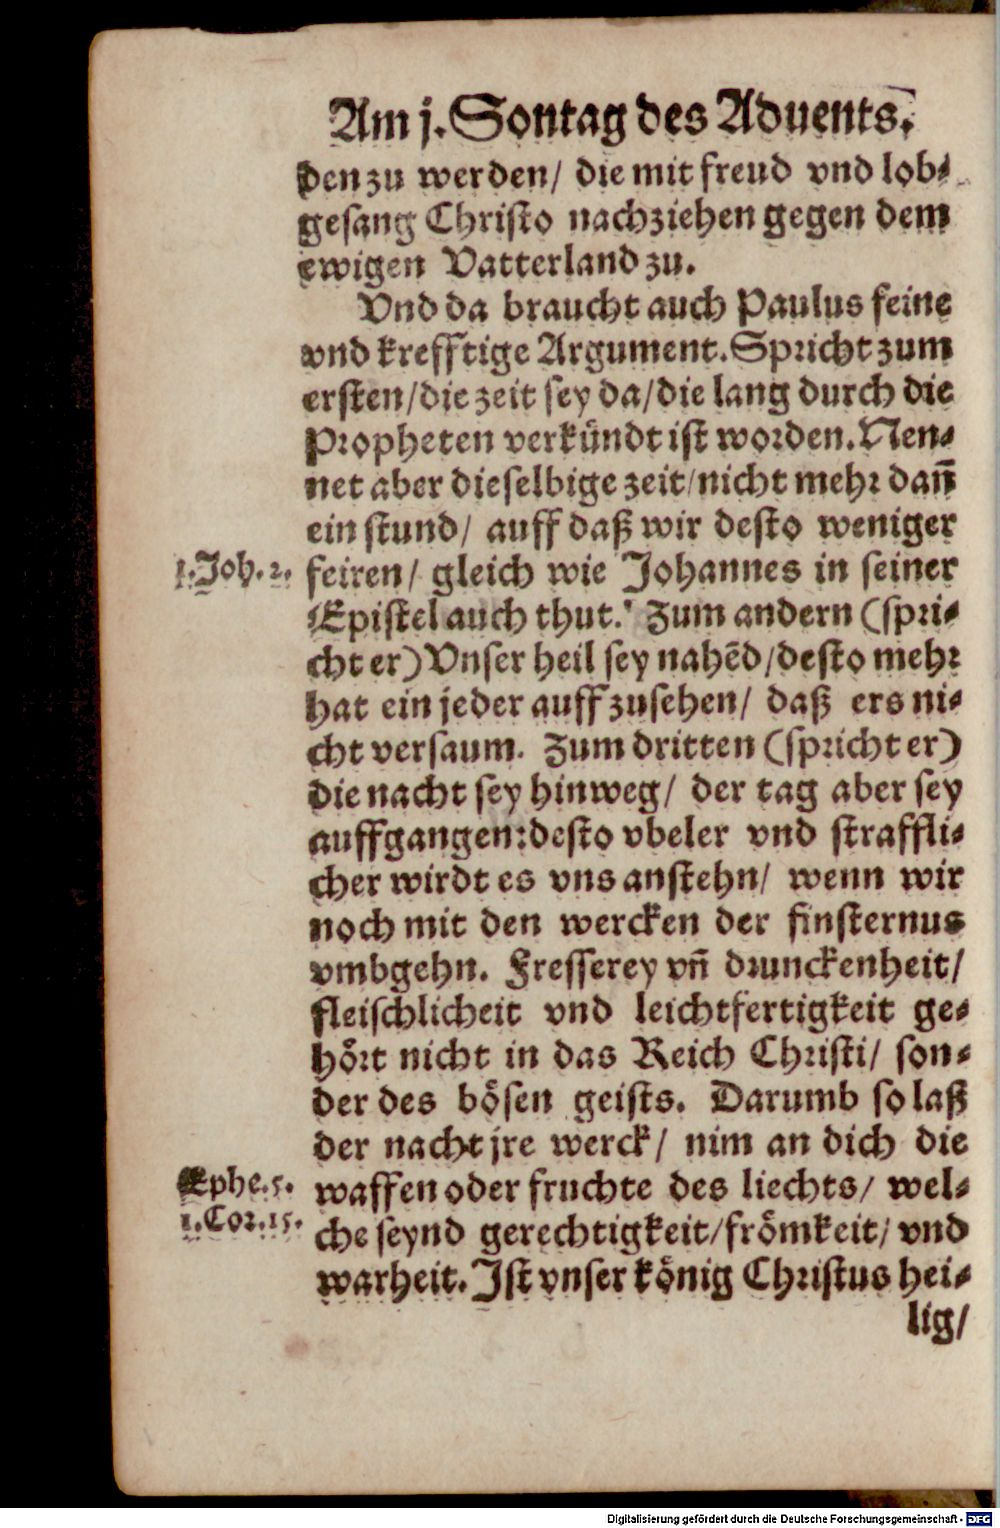 Am j. Sontag des Aduents.
den zu werden/ die mit freud vnd lob-
gesang Christo nachziehen gegen dem
ewigen Vatterland zu.
Vnd da braucht auch Paulus feine
vnd krefftige Argument. Spricht zum
ersten/ die zeit sey da/ die lang durch die
Propheten verkündt ist worden. Nen-
net aber dieselbige zeit/ nicht mehr dañ
ein stund/ auff daß wir desto weniger
1. Joh. 2.
feiren/ gleich wie Johannes in seiner
Epistel auch thut. Zum andern (spri-
cht er) Vnser heil sey nahẽd/ desto mehr
hat ein jeder auff zusehen/ daß ers ni-
cht versaum. Zum dritten (spricht er)
die nacht sey hinweg/ der tag aber sey
auffgangen: desto vbeler vnd straffli-
cher wirdt es vns anstehn/ wenn wir
noch mit den wercken der finsternus
vmbgehn. Fresserey vñ drunckenheit/
fleischlicheit vnd leichtfertigkeit ge-
hört nicht in das Reich Christi/ son-
der des bösen geists. Darumb so laß
der nacht jre werck/ nim an dich die
Ephe. 5.
waffen oder fruchte des liechts/ wel-
1. Cor. 15.
che seynd gerechtigkeit/ frömkeit/ vnd
warheit. Ist vnser könig Christus hei-
lig/
Digitalisierung gefördert durch die Deutsche Forschungsgemeinschaft - DFG